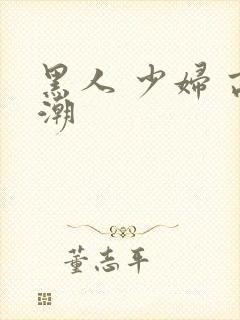 黑人 少婦 高
潮
董志平